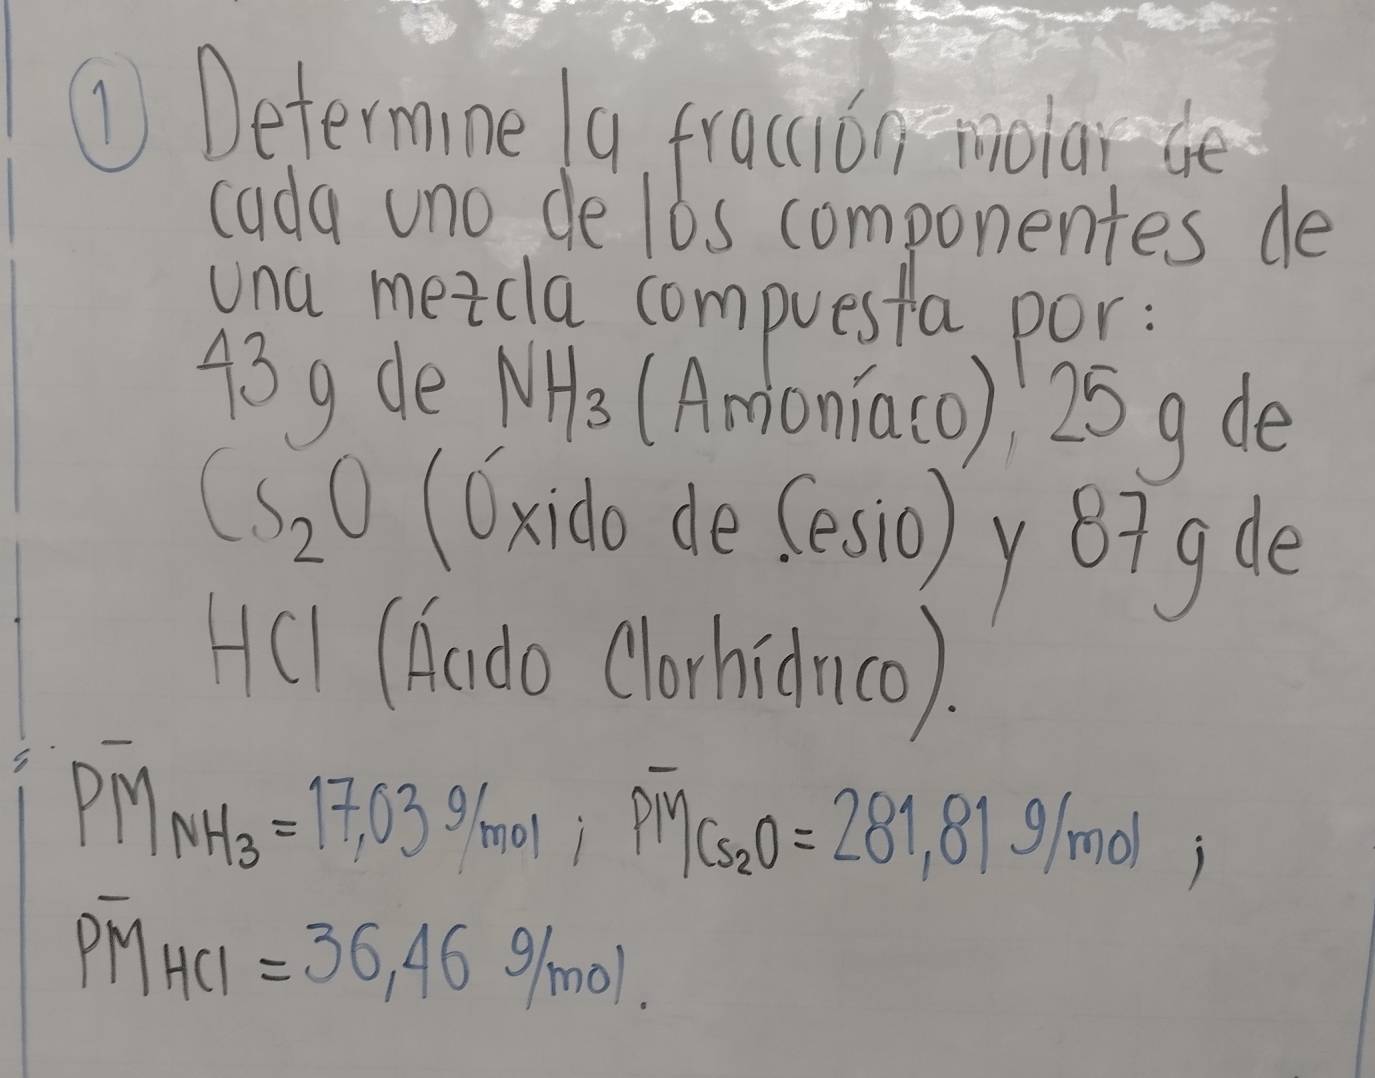 ① Determine la fracción molar de
cada uno de los componentes de
una mezcla compuesta por:
43 g de NH₃ (Amoníaco), 25 g de
Cs₂O (Óxido de Cesio) y 87 g de
HCl (Ácido Clorhídrico).
P̄M̄ NH₃ = 17,03 g/mol ; P̄M̄ Cs₂O = 281,81 g/mol ;
P̄M̄ HCl = 36,46 g/mol.